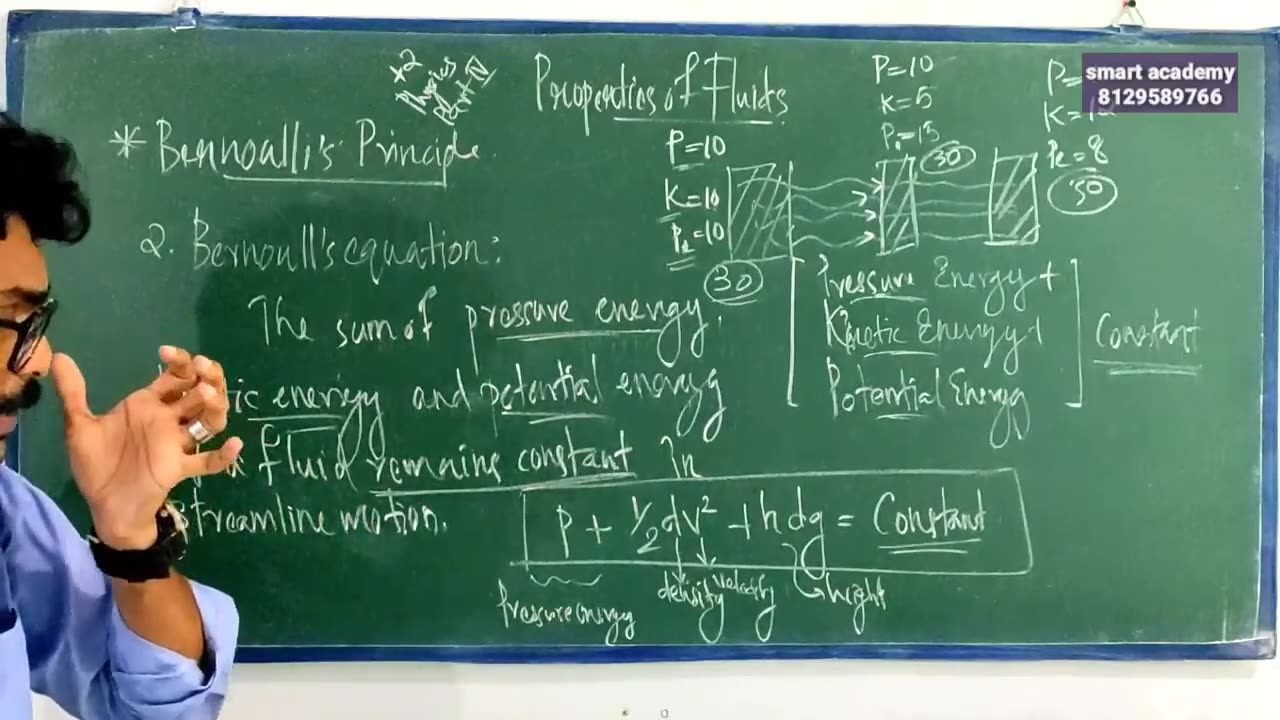 +2
Physics
Part IV
Properties of Fluids
* Bernoalli's Principle
2. Bernoull's equation:
The sum of pressure energy,
ic energy and potential energy
fluid remains constant In
streamline motion.
P=10
K=10
Pe=10
30
P=10
K=5
Pe=15
30
P=
K=12
Pe=8
30
Pressure Energy +
Kinetic Energy +
Potential Energy
Constant
P + 1/2 dv² + hdg = Constant
Pressure energy
density
velocity
height
smart academy
8129589766